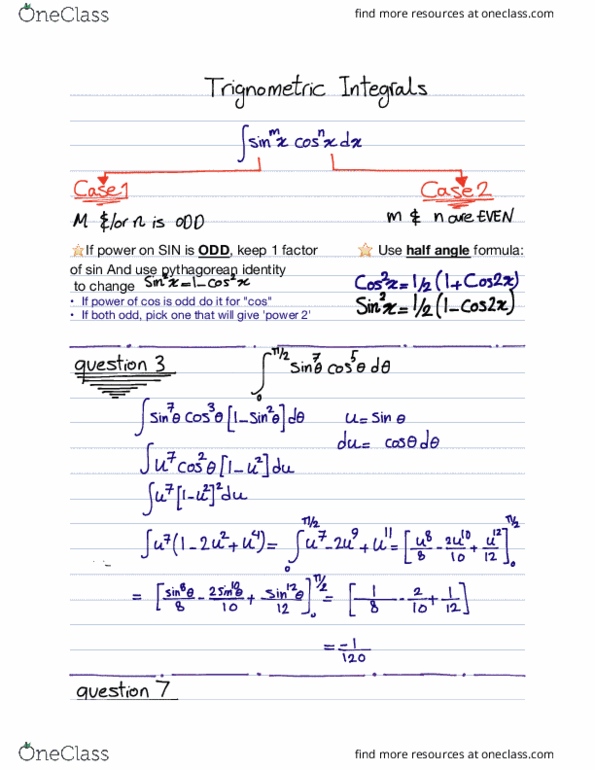 OneClass find more resources at oneclass.com
Trignometric Integrals
∫sin^m x cos^n x dx
Case 1 Case 2
M &/or n is ODD m & n are EVEN
If power on SIN is ODD, keep 1 factor
of sin And use pythagorean identity
to change Sin²x=1-Cos²x
• If power of cos is odd do it for "cos"
• If both odd, pick one that will give 'power 2'
Use half angle formula:
Cos²x=1/2(1+Cos2x)
Sin²x=1/2(1-Cos2x)
question 3 ∫₀^π/2 sin⁷θ cos⁵θ dθ
∫sin⁷θ cos³θ[1-sin²θ]dθ u=sin θ
du= cosθdθ
∫u⁷cos²θ[1-u²]du
∫u⁷[1-u²]²du
∫u⁷(1-2u²+u⁴)= ∫₀^π/2 u⁷-2u⁹+u¹¹=[u⁸/8-2u¹⁰/10+u¹²/12]₀^π/2
=[sin⁸θ/8-2sin¹⁰θ/10+sin¹²θ/12]₀^π/2=[1/8-2/10+1/12]
=-1/120
question 7
OneClass find more resources at oneclass.com